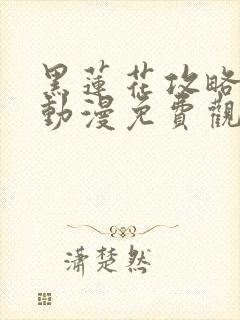 黑蓮花攻略
動漫免費觀
瀟楚然